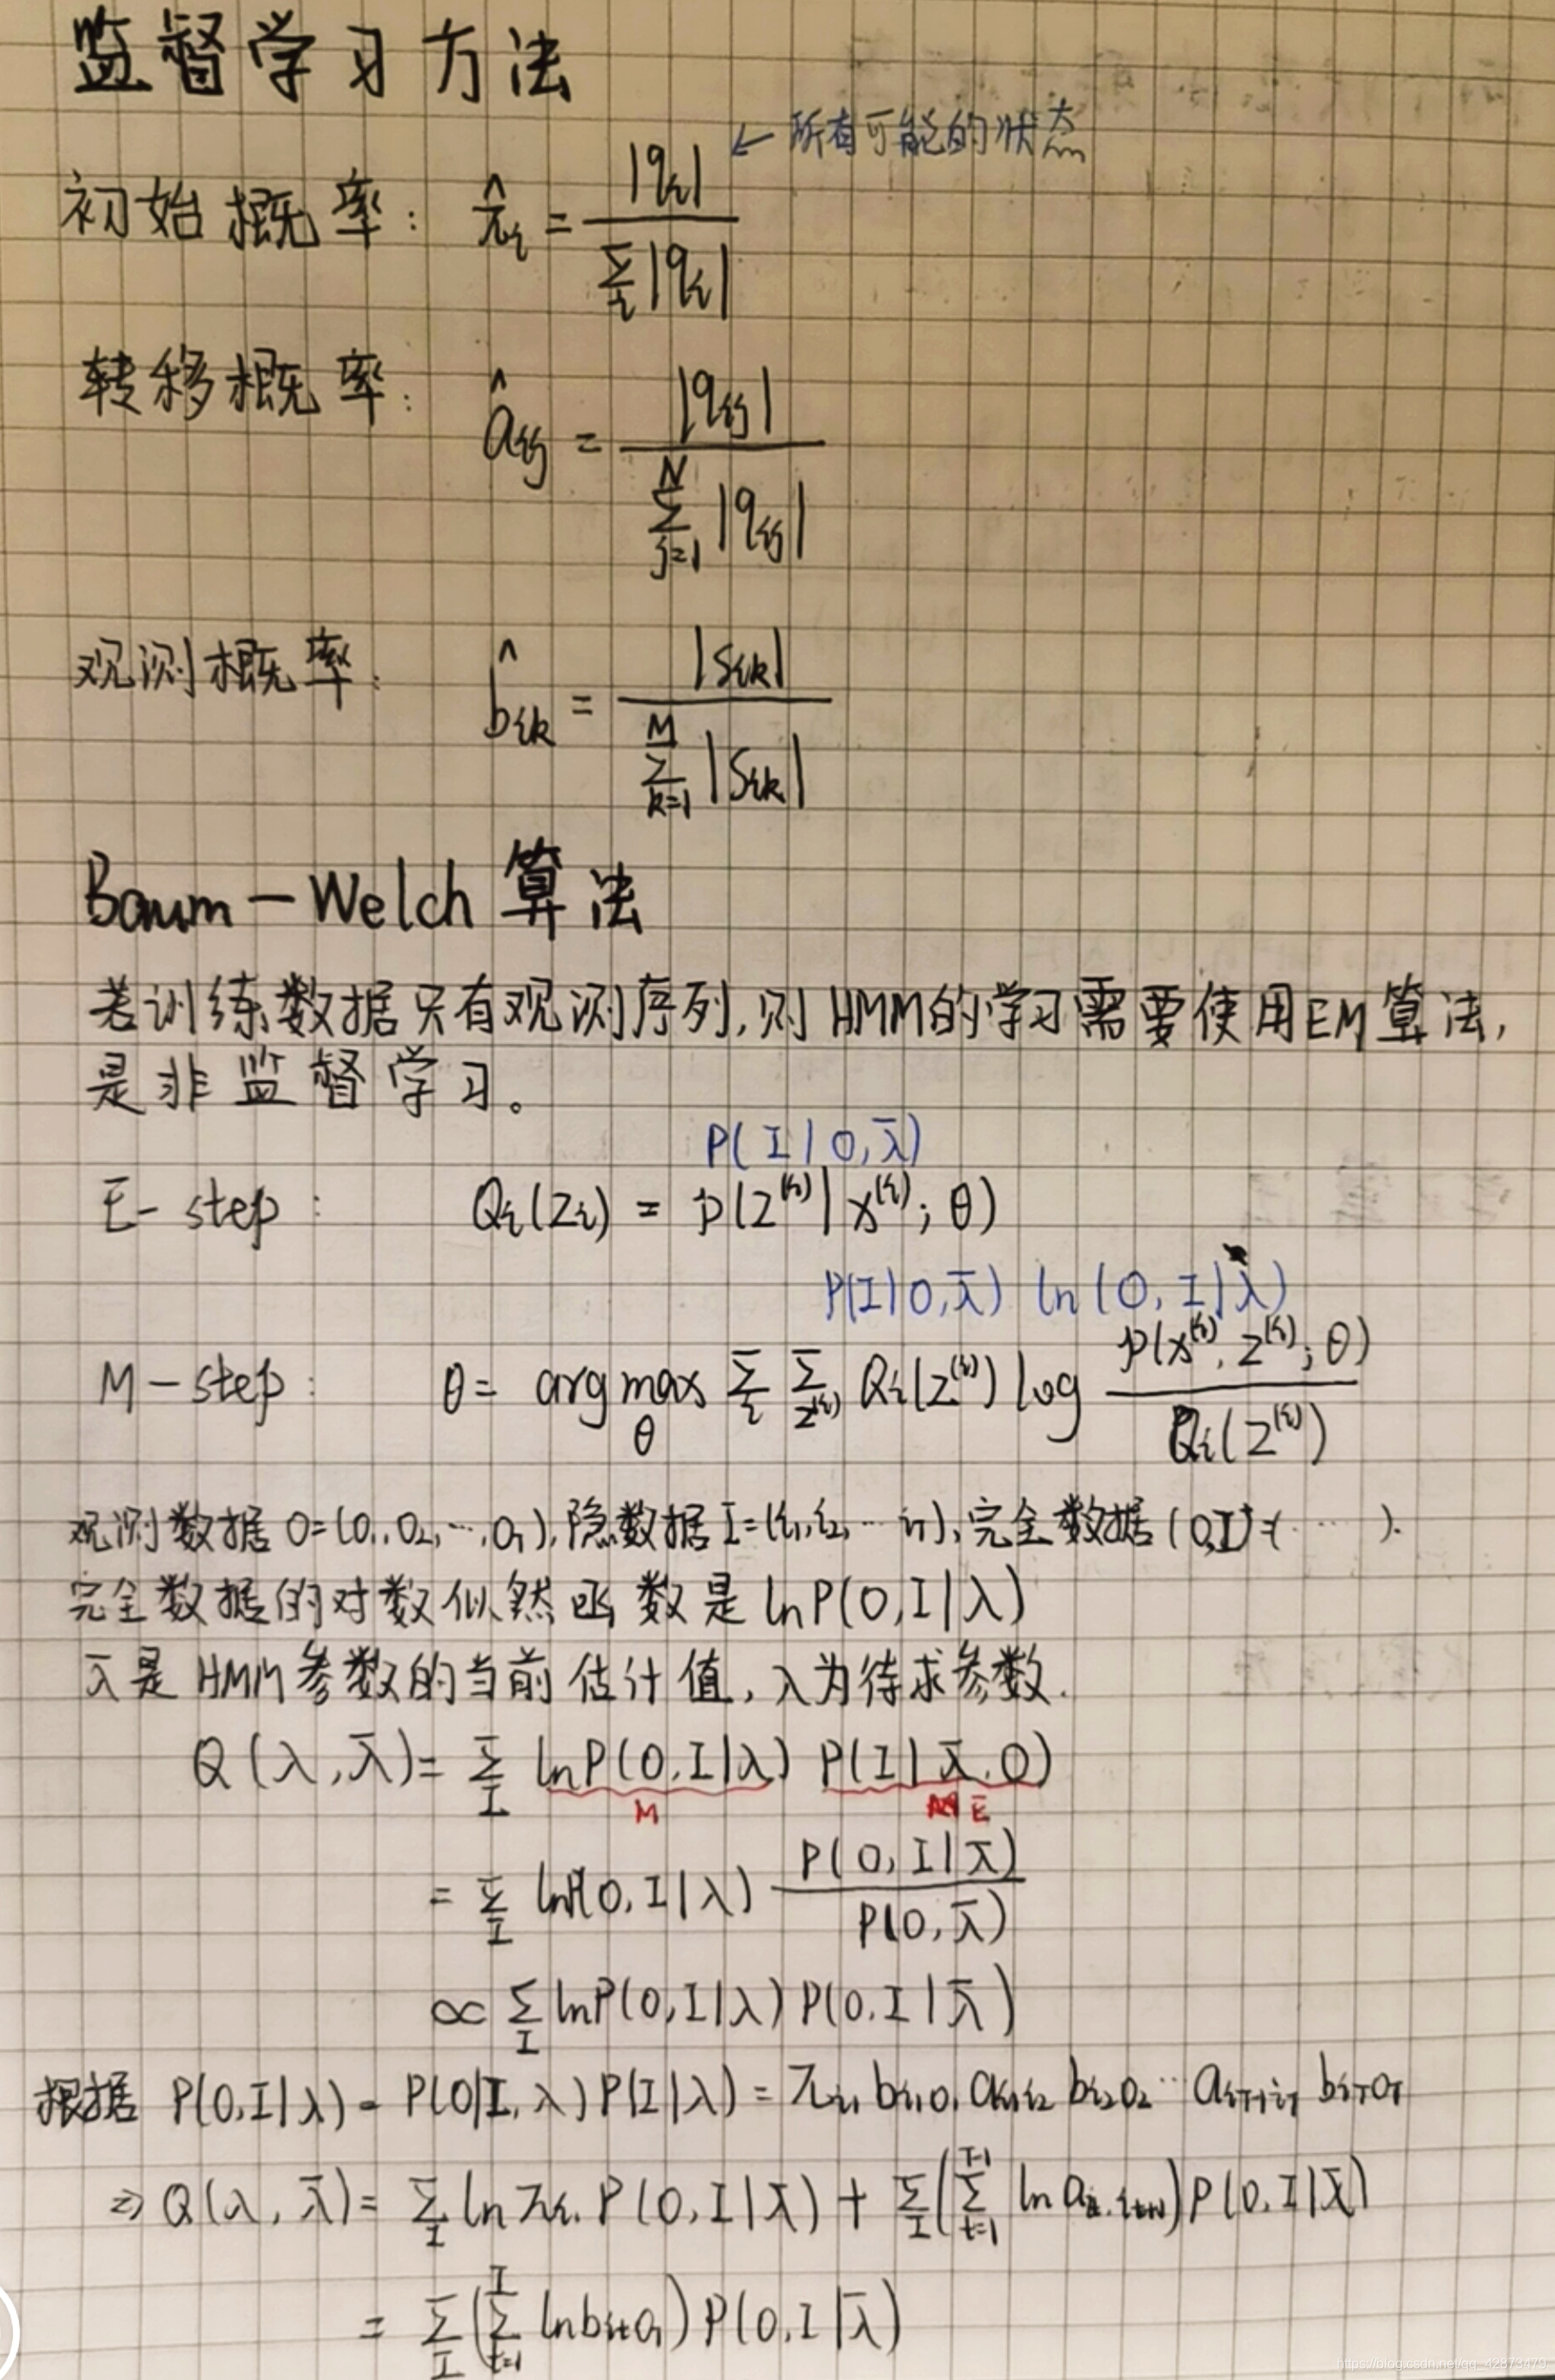 监督学习方法
← 所有可能的状态
初始概率: π̂_i = |q_i| / Σ_i |q_i|
转移概率: â_ij = |q_ij| / Σ_{j=1}^{N} |q_ij|
观测概率: b̂_ik = |S_ik| / Σ_{k=1}^{M} |S_ik|
Baum-Welch 算法
若训练数据只有观测序列,则HMM的学习需要使用EM算法,
是非监督学习。
P(I|O,λ̄)
E-step: Q_i(Z_i) = p(Z^(i)|x^(i);θ)
P(I|O,λ̄) ln(O,I|λ)
M-step: θ = arg max_θ Σ_i Σ_{z^(i)} Q_i(Z^(i)) log p(x^(i),z^(i);θ) / Q_i(Z^(i))
观测数据O=(O_1,O_2,…,O_T),隐数据I=(i_1,i_2,…i_T),完全数据(O,I)=(……).
完全数据的对数似然函数是lnP(O,I|λ)
λ̄是HMM参数的当前估计值,λ为待求参数.
Q(λ,λ̄)= Σ_I lnP(O,I|λ) P(I|λ̄,O)
M E
= Σ_I lnP(O,I|λ) P(O,I|λ̄) / P(O,λ̄)
∝ Σ_I lnP(O,I|λ) P(O,I|λ̄)
根据 P(O,I|λ) = P(O|I,λ)P(I|λ) = π_{i1} b_{i1o1} a_{i1i2} b_{i2o2} … a_{iT-1iT} b_{iToT}
⇒ Q(λ,λ̄)= Σ_I lnπ_{i1} P(O,I|λ̄) + Σ_I(Σ_{t=1}^{T-1} ln a_{it,it+1})P(O,I|λ̄)
= Σ_I(Σ_{t=1}^{T} ln b_{itot})P(O,I|λ̄)